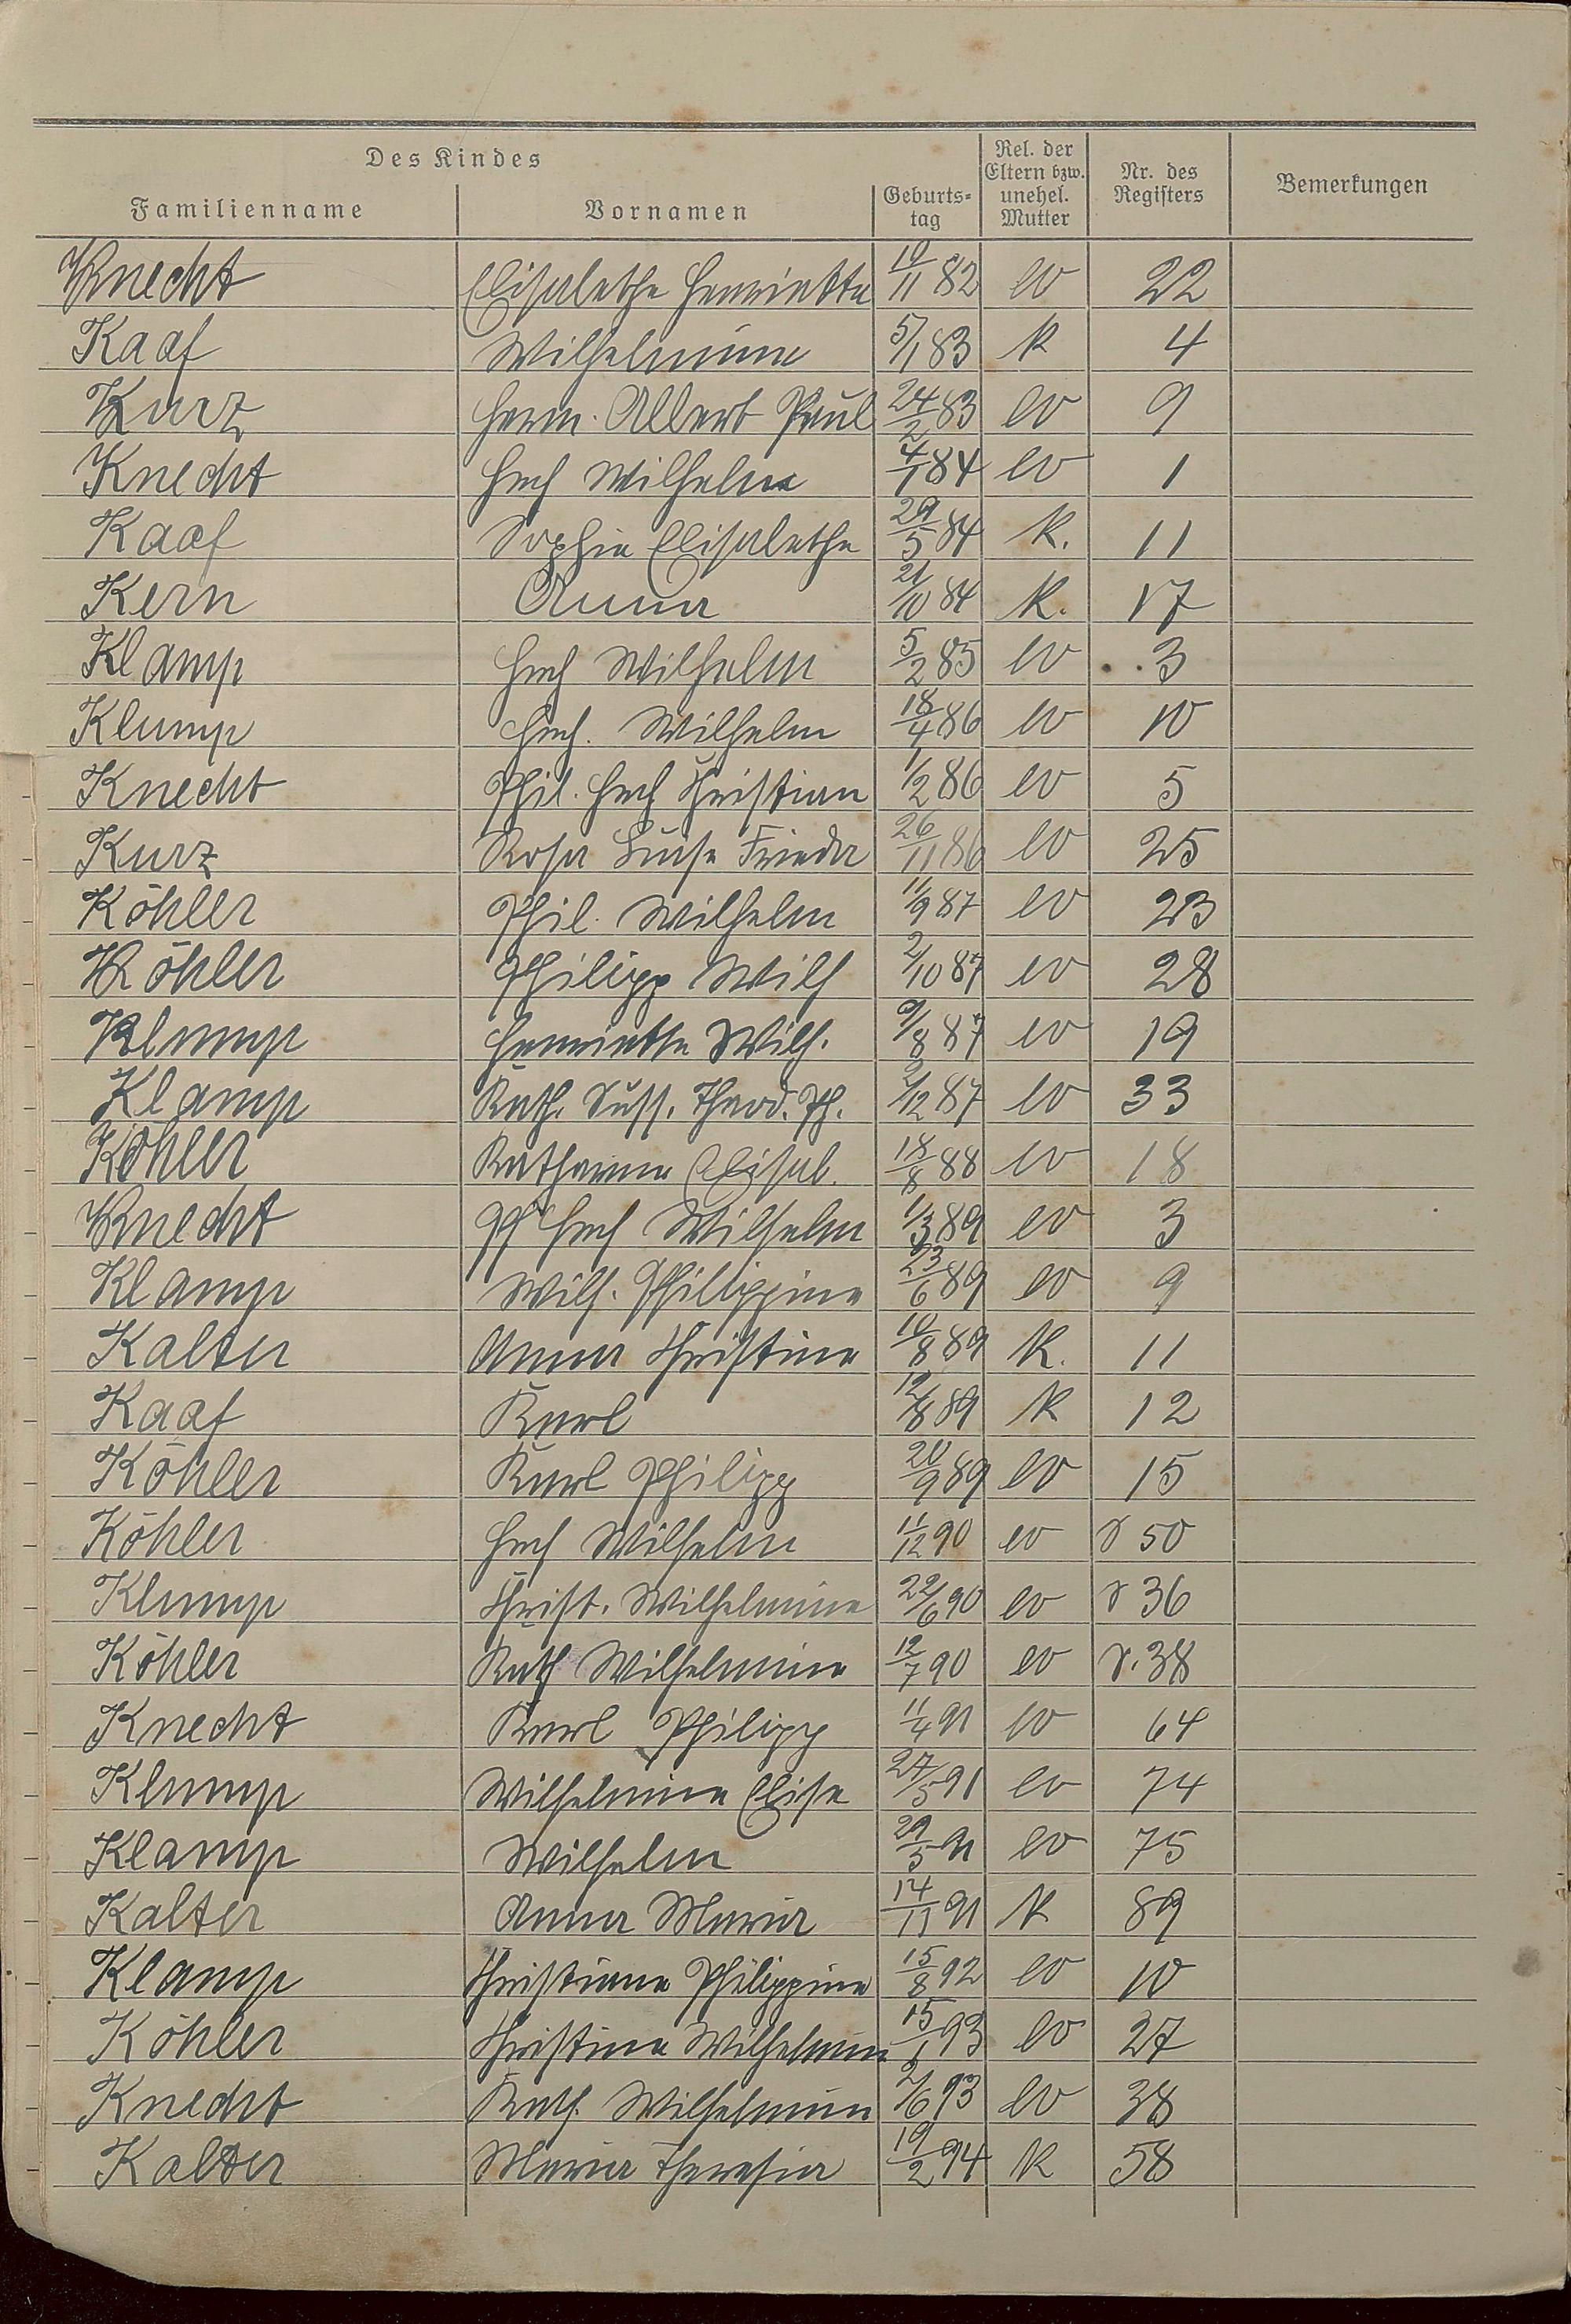 Des Kindes
Familienname Vornamen Geburts- tag Rel. der Eltern bzw. unehel. Mutter Nr. des Registers Bemerkungen
Knecht Elisabethe Henriette 10/11 82 ev 22
Kaaf Wilhelmine 5/1 83 k 4
Kurz Herm. Albert Paul 24/2 83 ev 9
Knecht Hch Wilhelm 4/1 84 ev 1
Kaaf Sophie Elisabethe 29/5 84 k. 11
Kern Anna 21/10 84 k. 17
Klamp Hch Wilhelm 5/2 85 ev 3
Klump Hch. Wilhelm 18/4 86 ev 10
Knecht Phil. Hch Christian 1/2 86 ev 5
Kurz Rosa Luise Frieda 26/11 86 ev 25
Köhler Phil. Wilhelm 11/9 87 ev 23
Köhler Philipp Wilh 2/10 87 ev 28
Klump Henriette Wilh. 9/8 87 ev 19
Klamp Kath. Theod. Ph. 2/12 87 ev 33
Köhler Katharine Elisab. 18/8 88 ev 18
Knecht Ph Hch Wilhelm 1/3 89 ev 3
Klamp Wilh. Philippine 23/6 89 ev 9
Kalter Anna Christine 10/8 89 k. 11
Kaaf Karl 12/8 89 k 12
Köhler Karl Philipp 20/9 89 ev 15
Köhler Hch Wilhelm 11/12 90 ev 50
Klump Christ. Wilhelmine 22/6 90 ev 36
Köhler Kath Wilhelmine 12/7 90 ev 38
Knecht Karl Philipp 11/4 91 ev 64
Klump Wilhelmine Elise 27/5 91 ev 74
Klamp Wilhelm 29/5 91 ev 75
Kalter Anna Maria 14/11 91 k 89
Klamp Christiane Philippine 15/8 92 ev 10
Köhler Christine Wilhelmine 15/1 93 ev 27
Knecht Kath. Wilhelmine 2/6 93 ev 38
Kalter Maria Theresia 19/2 94 k 58